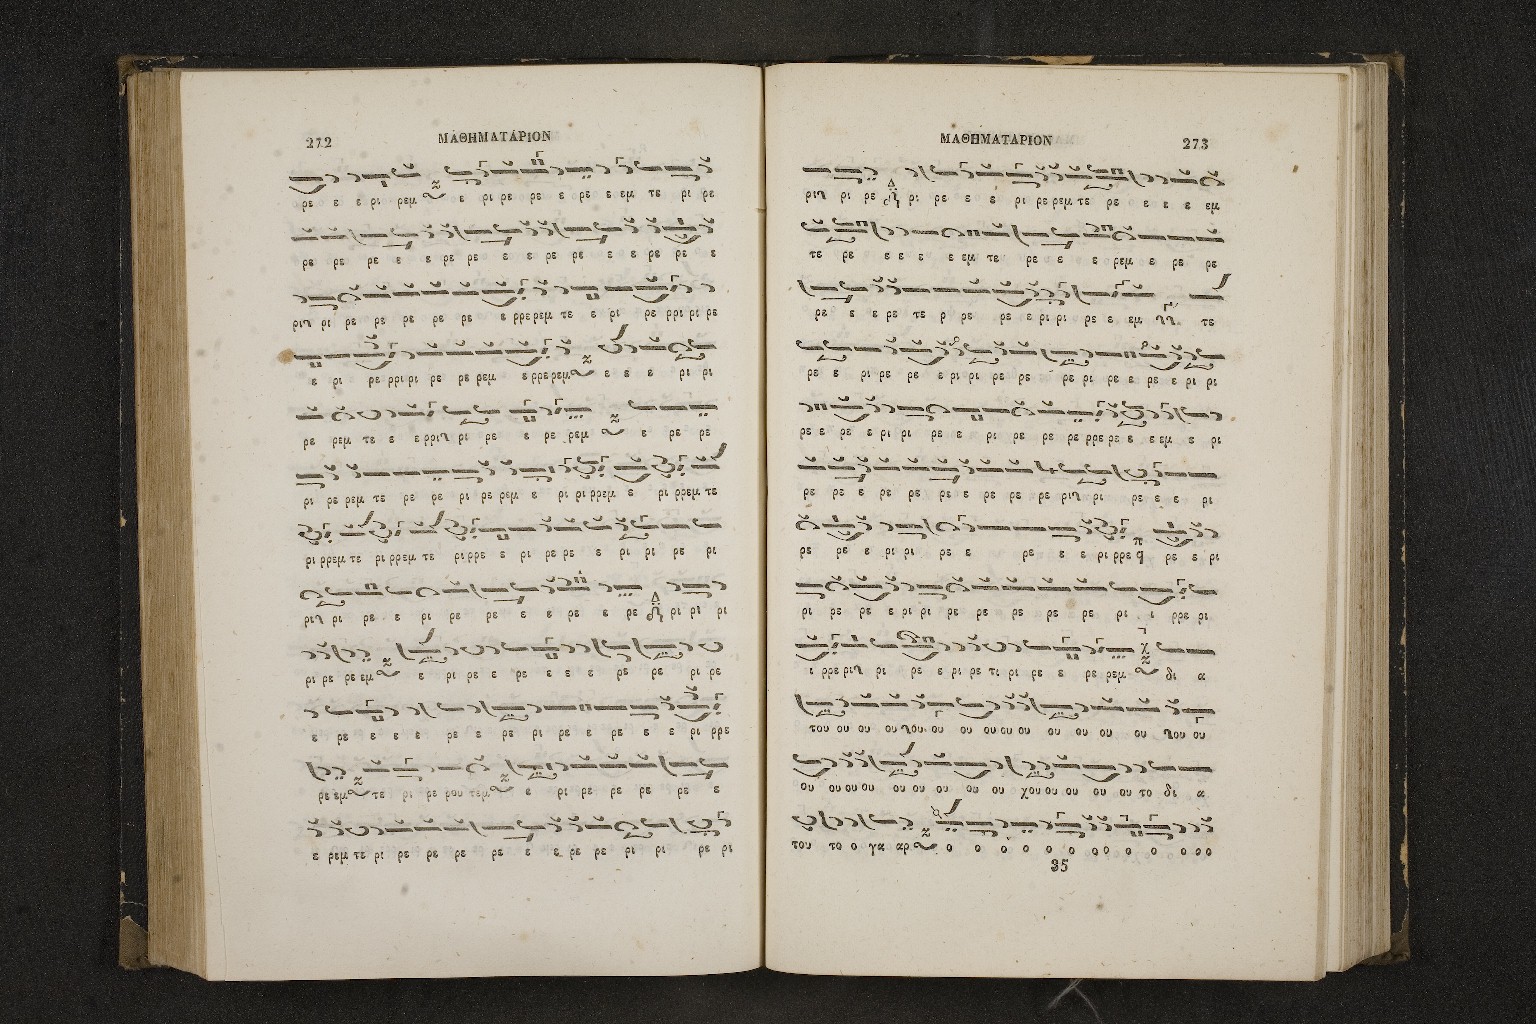 272 ΜΑΘΗΜΑΤΑΡΙΟΝ
ρε ε ε ρι ρεμ ε ρι ρε ρε ε ρε ε εμ τε ρι ρε
ρε ρε ρε ε ε ρε ρε ε ε ρε ρε ε ε ρε ρε ε
ρι ρε ρε ρε ρε ρε ε ρρε ρεμ τε ε ρι ρε ρρι ρι ρε
ε ρι ρε ρρι ρι ρε ρε ρεμ ε ρρε ρεμ ε ε ε ρι ρι
ρε ρεμ τε ε ε ρρι ρι ρε ε ρε ρεμ ε ρε ρε
ρι ρε ρεμ τε ρε ρε ρι ρε ρεμ ε ρι ρι ρρεμ ε ρι ρρεμ τε
ρι ρρεμ τε ρι ρρεμ τε ρι ρρε ε ρι ρε ρε ε ρι ρι ρε ρι
ρι ρε ε ρι ρε ε ε ρε ε ρε ρι ρι ρι
ρι ρε ρε εμ ε ρι ρε ε ρε ε ε ε ρε ρε ρι ρε
ε ρε ε ε ε ρε ε ρε ρι ρε ε ρε ε ε ρι ρρε
ρε εμ τε ρι ρε ρου τεμ ε ρι ρε ρε ρε ρε ε
ε ρεμ τε ρι ρε ρε ρε ρε ε ε ρε ρε ρι ρι ρε ρι
ΜΑΘΗΜΑΤΑΡΙΟΝ 273
ρι ρε ρι ρε ε ε ρι ρε ρεμ τε ρε ε ε ε εμ
τε ρε ε ε ε ε εμ τε ρε ε ε ρεμ ε ρε ρε
ρε ε ε ρε τε ρ ρε ρε ε ρι ρι ρε ε εμ τε
ρε ε ρι ρε ρε ε ρι ρι ρε ρε ρε ρι ρε ε ρε ε ρι ρι
ρε ε ρε ε ρι ρι ρε ε ρι ρε ρε ρε ρρε ρε ε ε εμ ε ρι
ρε ρε ε ρε ρε ρε ε ρε ρε ρε ρι ρε ε ε ρι
ρε ρε ε ρι ρι ρε ε ρε ε ε ρι ρρε ρε ε ρι
ρι ρε ρε ε ρι ρι ρε ρε ρε ρε ρε ρι ι ρρε ρι
ι ρρε ρι ρε ε ρι ρε τι ρι ρε ε ρε ρεμ δι α
του ου ου ου ου ου ου ου ου ου ου ου ου ου ου
ου ου ου ου ου ου ου ου χου ου ου ου ου το δι α
του το ο γα αρ ο ο ο ο ο ο ο ο ο ο ο ο ο
35